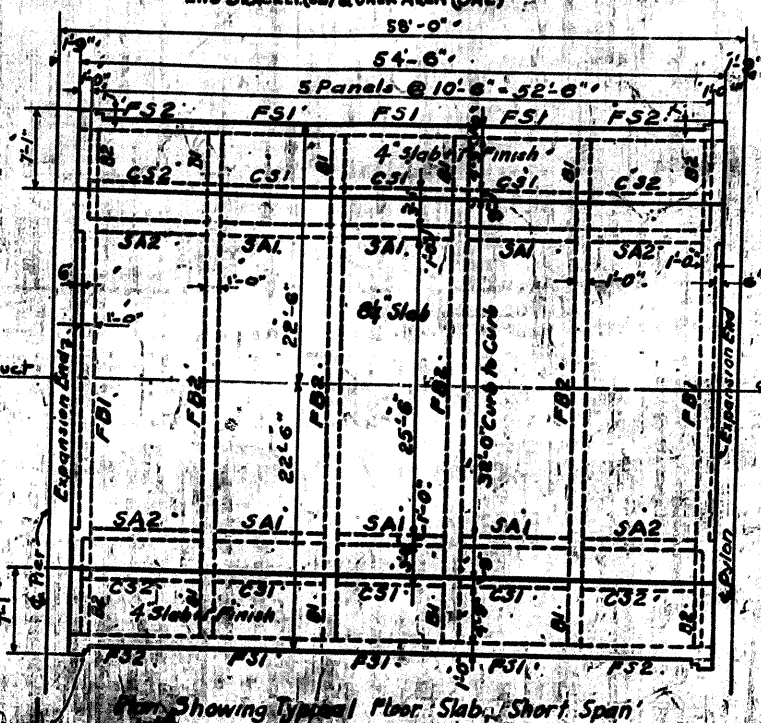 58'-0"
1'-9" 54'-6" 1'-9"
1'-0" 5 Panels @ 10'-6" = 52'-6"
FS2 FS1 FS1 FS1 FS2
7'-1" B2 B1 B1 4" Slab 1" Finish B1 B2
CS2 CS1 CS1 CS1 CS2
SA2 SA1 SA1 SA1 SA2
6" 1'-0" 1'-0" 1'-0" 1'-0" 6"
1'-0" 22'-6" Slab
Expansion End FB1 FB2 FB2 25'-6" FB2 32'-0" Curb to Curb FB2 FB1 Expansion End
22'-6"
SA2 SA1 SA1 1'-0" SA1 SA2
℄ Pier ℄ Pylon
7'-1" CS2 CS1 CS1 CS1 CS2
B2 4" Slab 1" Finish B1 B1 B1 B1 B2
FS2 FS1 FS1 1'-0" FS1 FS2
Plan Showing Typical Floor Slab, Short Span